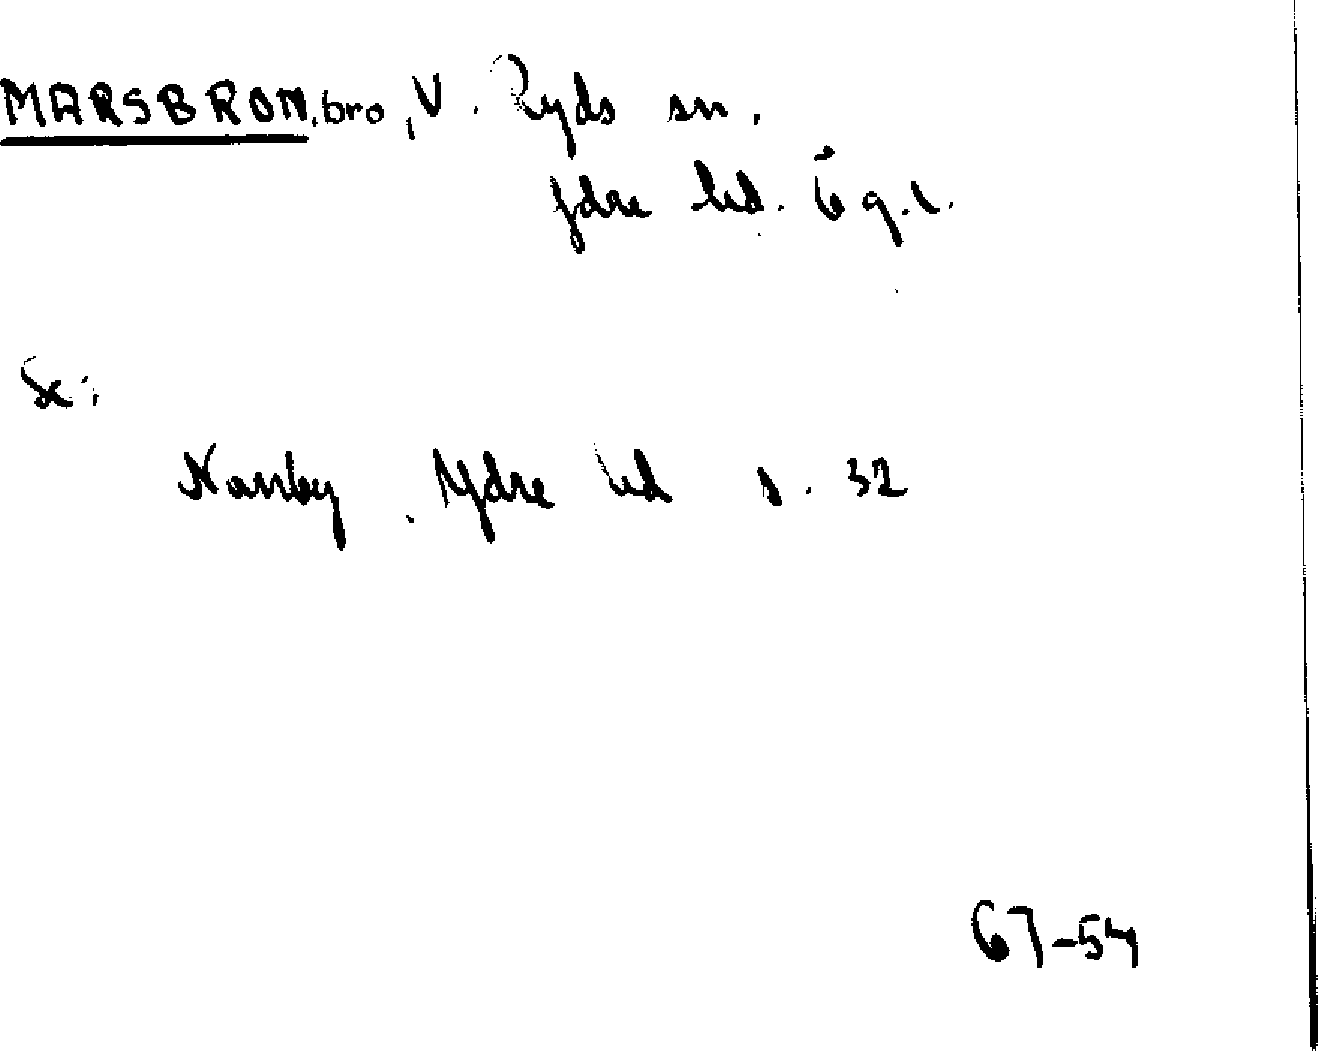 MARSBRON, bro, V. Ryds sn.
Ydre hd. Ög.l.
Se:
Ydre hd s. 32
67-54